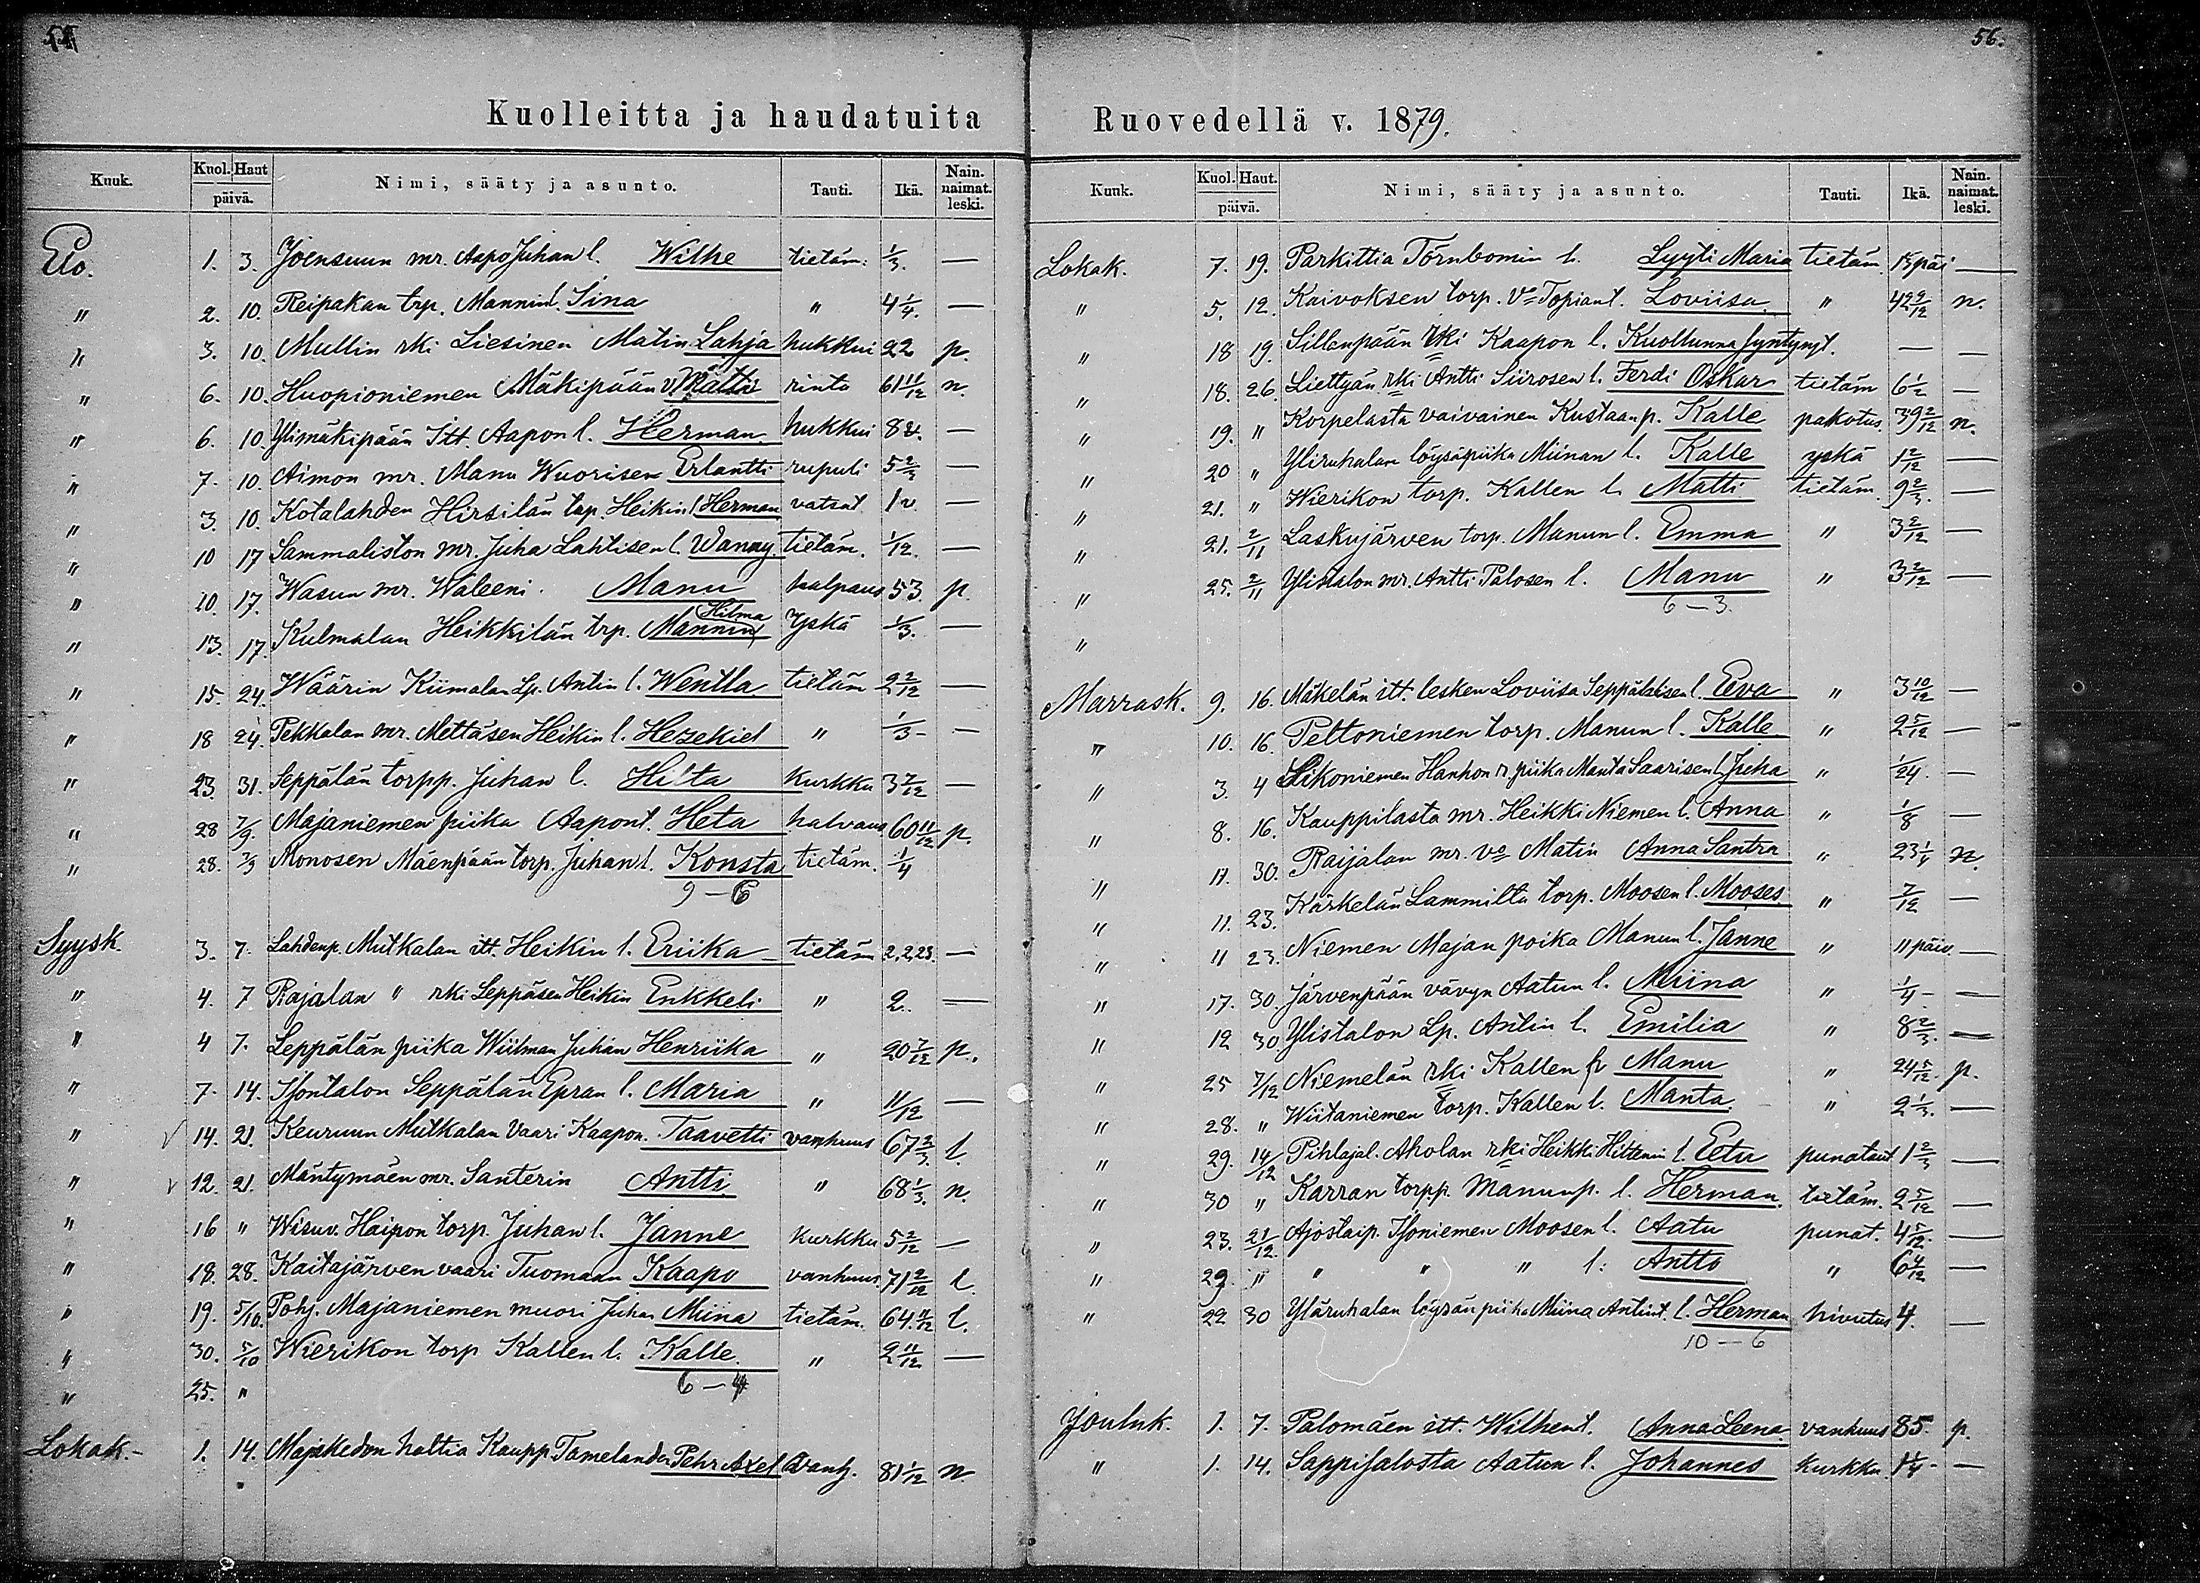 56.
Kuolleitta ja haudatuita
Ruovedellä v. 1879.
Kuuk. Kuol. Haut päivä. Nimi, sääty ja asunto. Tauti. Ikä. Nain. naimat. leski.
Elo. 1. 3. Joensuun mr. Aapo Juhan l. Wilhe tietäm. 1/3. —
" 2. 10. Reipakan trp. Mannin l. Sina " 4 1/4. —
" 3. 10. Mullin rki Liesinen Matin Lahja hukkui 22 p.
" 6. 10. Huopioniemen Mäkipään v Matti rinta 61 11/12 n.
" 6. 10. Ylimäkipään Itt. Aapon l. Herman hukkui 8 v. —
" 7. 10. Aimon mr. Manu Wuorisen Erlantti rupuli 5 2/3 —
" 3. 10. Kotalahden Hirsilän trp. Heikin l. Herman vatsat 1 v —
" 10 17 Sammaliston mr. Juha Lahtisen l. Wanny tietäm. 1/12. —
" 10. 17. Wasun mr. Waleeni. Manu halpaus 53. p.
" 13. 17. Kulmalan Heikkilän trp. Mannin Hilma Yskä 1/3. —
" 15. 24. Wäärin Kiimalan Lp. Antin l. Wentla tietäm 2 2/12 —
" 18 24. Pekkalan mr. Mettäsen Heikin l. Hezekiel " 1/3 — —
" 23. 31. Seppälän torpp. Juhan l. Hilta kurkku 3 7/12 —
" 28 7/9. Majaniemen piika Aapon t. Heta halvaus 60 11/12 p.
" 28. 7/9 Monosen Mäenpään torp. Juhan l. Konsta tietäm. 1/4
9 — 6
Syysk. 3. 7. Lahdenp. Mutkalan itt. Heikin l. Eriika — tietäm 2,2,23. —
" 4. 7 Rajalan " rki Seppäsen Heikin Enkkeli " 2. —
" 4 7. Leppälän piika Wiitman Juhan Henriika " 20 7/12 p.
" 7. 14. Isontalon Seppälän Epran l. Maria " 11/12 —
" 14. 21. Keuruun Mutkalan Vaari Kaapon. Taavetti vanhuus 67 2/3. l.
" 12. 21. Mäntymäen mr. Santerin Antti " 68 1/3. n.
" 16 " Wisuv. Haipon torp. Juhan l. Janne kurkku 5 2/12 —
" 18. 28. Kaitajärven vaari Tuomaan Kaapo vanhuus 71 2/12 l.
" 19. 5/10. Pohj. Majaniemen muori Juhan Miina tietäm. 64 11/12 l.
" 30. 5/10 Wierikon torp Kallen l. Kalle. " 2 11/12 —
" 25. " 6 — 4
Lokak. 1. 14. Majaikedon haltia Kaupp. Tamelander Pehr Axel vanh. 81 1/12 n
Kuuk. Kuol. Haut. päivä. Nimi, sääty ja asunto. Tauti. Ikä. Nain. naimat. leski.
Lokak. 7. 19. Parkittia Törnbomin l. Lyyti Maria tietäm. 15 päi —
" 5. 12. Kaivoksen torp. Vo Topian t. Loviisa " 42 9/12 n.
" 18 19. Sillenpään rki Kaapon l. Kuollunna syntynyt. — —
" 18. 26. Liettyän rki Antti Siirosen l. Ferdi Oskar tietäm 6 1/2 —
" 19. " Korpelasta vaivainen Kustaan p. Kalle pakotus. 39 2/12 n.
" 20 " Yliruhalan löysäpiika Miinan l. Kalle yskä 1 2/12 —
" 21. " Wierikon torp. Kallen l. Matti tietäm. 9 2/3. —
" 21. 2/11 Laskujärven torp. Manun l. Emma " 3 2/12 —
" 25. 2/11 Ylistalon mr. Antti Palosen l. Manu " 3 2/12 —
6 — 3.
"
Marrask. 9. 16. Mäkelän itt. lesken Loviisa Seppäläisen l. Eeva " 3 10/12 —
" 10. 16. Peltoniemen torp. Manun l. Kalle " 2 5/12 —
" 3. 4 Sikoniemen Hanhon r. piika Manta Saarisen l. Juha " 1/24. —
" 8. 16. Kauppilasta mr. Heikki Niemen l. Anna " 1/8 —
" 11. 30. Raijalan mr. Vo Matin Anna Santra " 23 1/4 n.
" 11. 23. Kärkelän Lammilta torp. Moosen l. Mooses " 7/12 —
" 11 23. Niemen Majan poika Manun l. Janne " 11 päiv. —
" 17. 30 Järvenpään vävyn Aatun l. Miina " 1/4 — —
" 12 30 Ylistalon Lp. Antin l. Emilia " 8 2/3. —
" 25 7/12 Niemelän rki Kallen p Manu " 24 5/12. p.
" 28. " Wiitaniemen torp. Kallen l. Manta. " 2 1/3. —
" 29. 14/12 Pihlajal. Aholan rki Heikki Hittenin l. Eetu punataut 1 2/3 —
" 30 " Karran torpp. Manun p. l. Herman. tietäm. 2 5/12 —
" 23. 21/12. Ajostaip. Isoniemen Moosen l. Aatu punat. 4 5/12. —
" 29. " " " " l: Antto " 6 4/12 —
" 22. 30 Yläruhalan löysän piika Miina Antint. l. Herman hivutus 4. —
10 — 6
Jouluk. 1. 7. Palomäen itt. Wilhen t. Anna Leena vanhuus 85. p.
" 1. 14. Sappisalosta Aatun l. Johannes kurkku. 1 1/4 — —